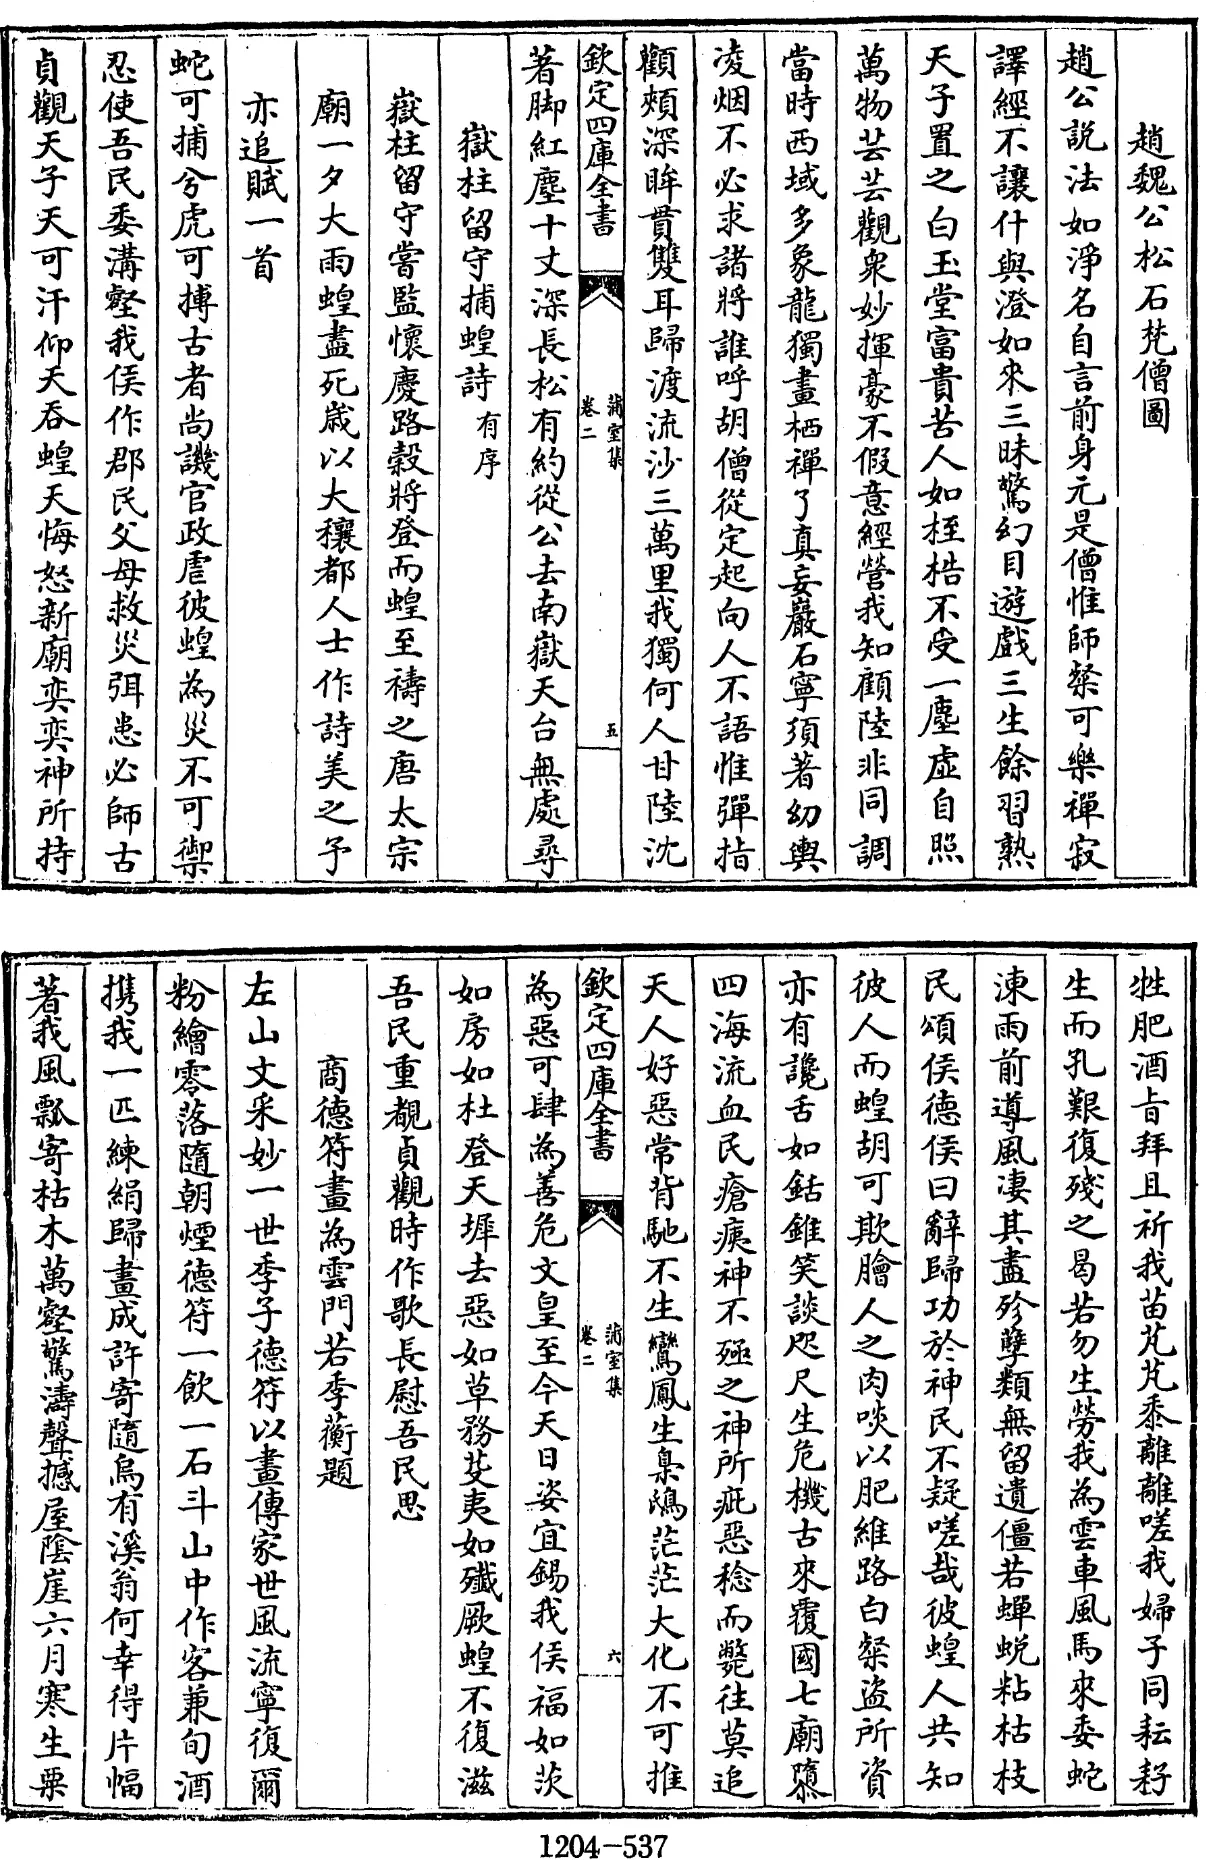 趙魏公松石梵僧圖
趙公説法如淨名自言前身元是僧惟師粲可樂禪寂
譯經不讓什與澄如來三昧驚幻目遊戲三生餘習熟
天子置之白玉堂富貴苦人如桎梏不受一塵虚自照
萬物芸芸觀衆妙揮豪不假意經營我知顧陸非同調
當時西域多象龍獨畫栖禪了真妄巖石寜須著幼輿
凌烟不必求諸將誰呼胡僧從定起向人不語惟彈指
顴頰深眸貫雙耳歸渡流沙三萬里我獨何人甘陸沈
欽定四庫全書
蒲室集
卷二
五
著脚紅塵十丈深長松有約從公去南嶽天台無處尋
嶽柱留守捕蝗詩有序
嶽柱留守嘗監懷慶路穀將登而蝗至禱之唐太宗
廟一夕大雨蝗盡死歳以大穰都人士作詩美之予
亦追賦一首
蛇可捕兮虎可搏古者尚譏官政虐彼蝗為災不可禦
忍使吾民委溝壑我侯作郡民父母救災弭患必師古
貞觀天子天可汗仰天吞蝗天悔怒新廟奕奕神所持
牲肥酒旨拜且祈我苗芃芃黍離離嗟我婦子同耘耔
生而孔艱復殘之曷若勿生勞我為雲車風馬來委蛇
涷雨前導風凄其盡殄孽類無留遺僵若蟬蜕粘枯枝
民頌侯德侯曰辭歸功於神民不疑嗟哉彼蝗人共知
彼人而蝗胡可欺膾人之肉啖以肥維路白粲盜所資
亦有讒舌如銛錐笑談咫尺生危機古來覆國七廟隳
四海流血民瘡痍神不殛之神所疵惡稔而斃往莫追
天人好惡常背馳不生鸞鳳生梟鴟茫茫大化不可推
欽定四庫全書
蒲室集
卷二
六
為惡可肆為善危文皇至今天日姿宜錫我侯福如茨
如房如杜登天墀去惡如草務芟夷如殲厥蝗不復滋
吾民重覩貞觀時作歌長慰吾民思
商德符畫為雲門若季蘅題
左山文采妙一世季子德符以畫傳家世風流寧復爾
粉繪零落隨朝煙德符一飲一石斗山中作客兼旬酒
携我一匹練絹歸畫成許寄隨烏有溪翁何幸得片幅
著我風瓢寄枯木萬壑驚濤聲撼屋陰崖六月寒生粟
1204-537